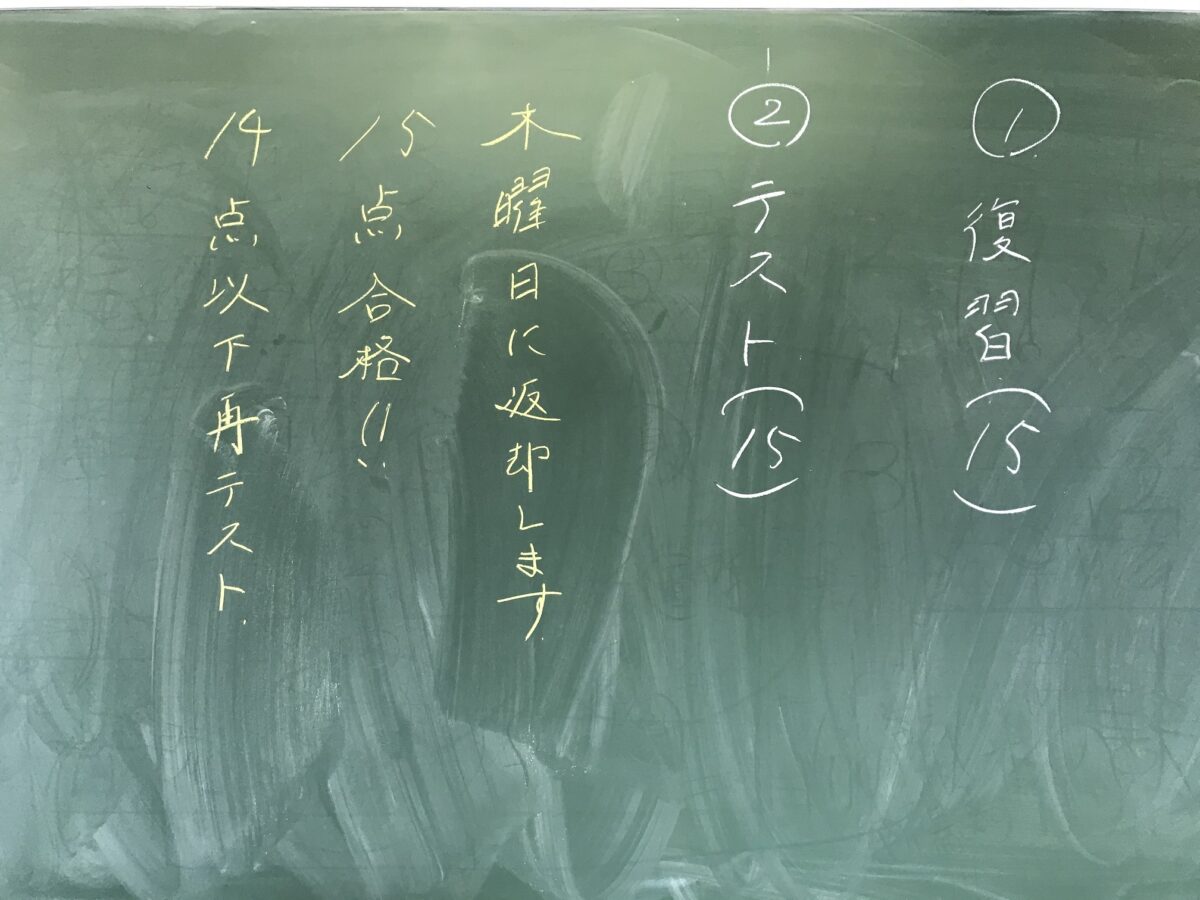 ① 復習(15)
② テスト(15)
木曜日に返却します
15点合格!!
14点以下再テスト